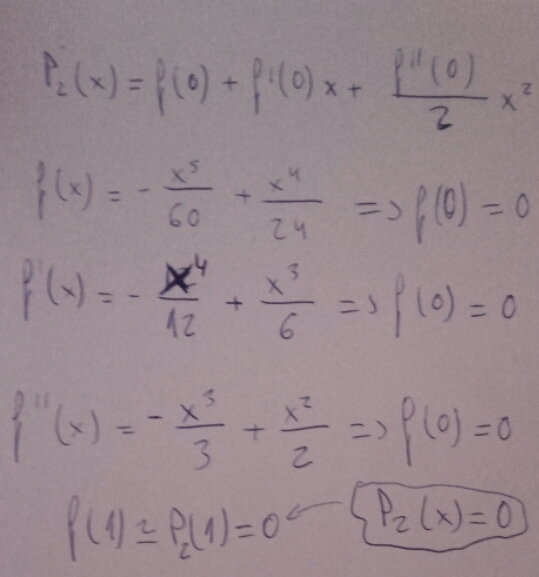 P₂(x) = f(0) + f'(0) x + f''(0)/2 x²
f(x) = - x⁵/60 + x⁴/24 => f(0) = 0
f'(x) = - x⁴/12 + x³/6 => f(0) = 0
f''(x) = - x³/3 + x²/2 => f(0) = 0
f(1) ≃ P₂(1) = 0 ← P₂(x) = 0